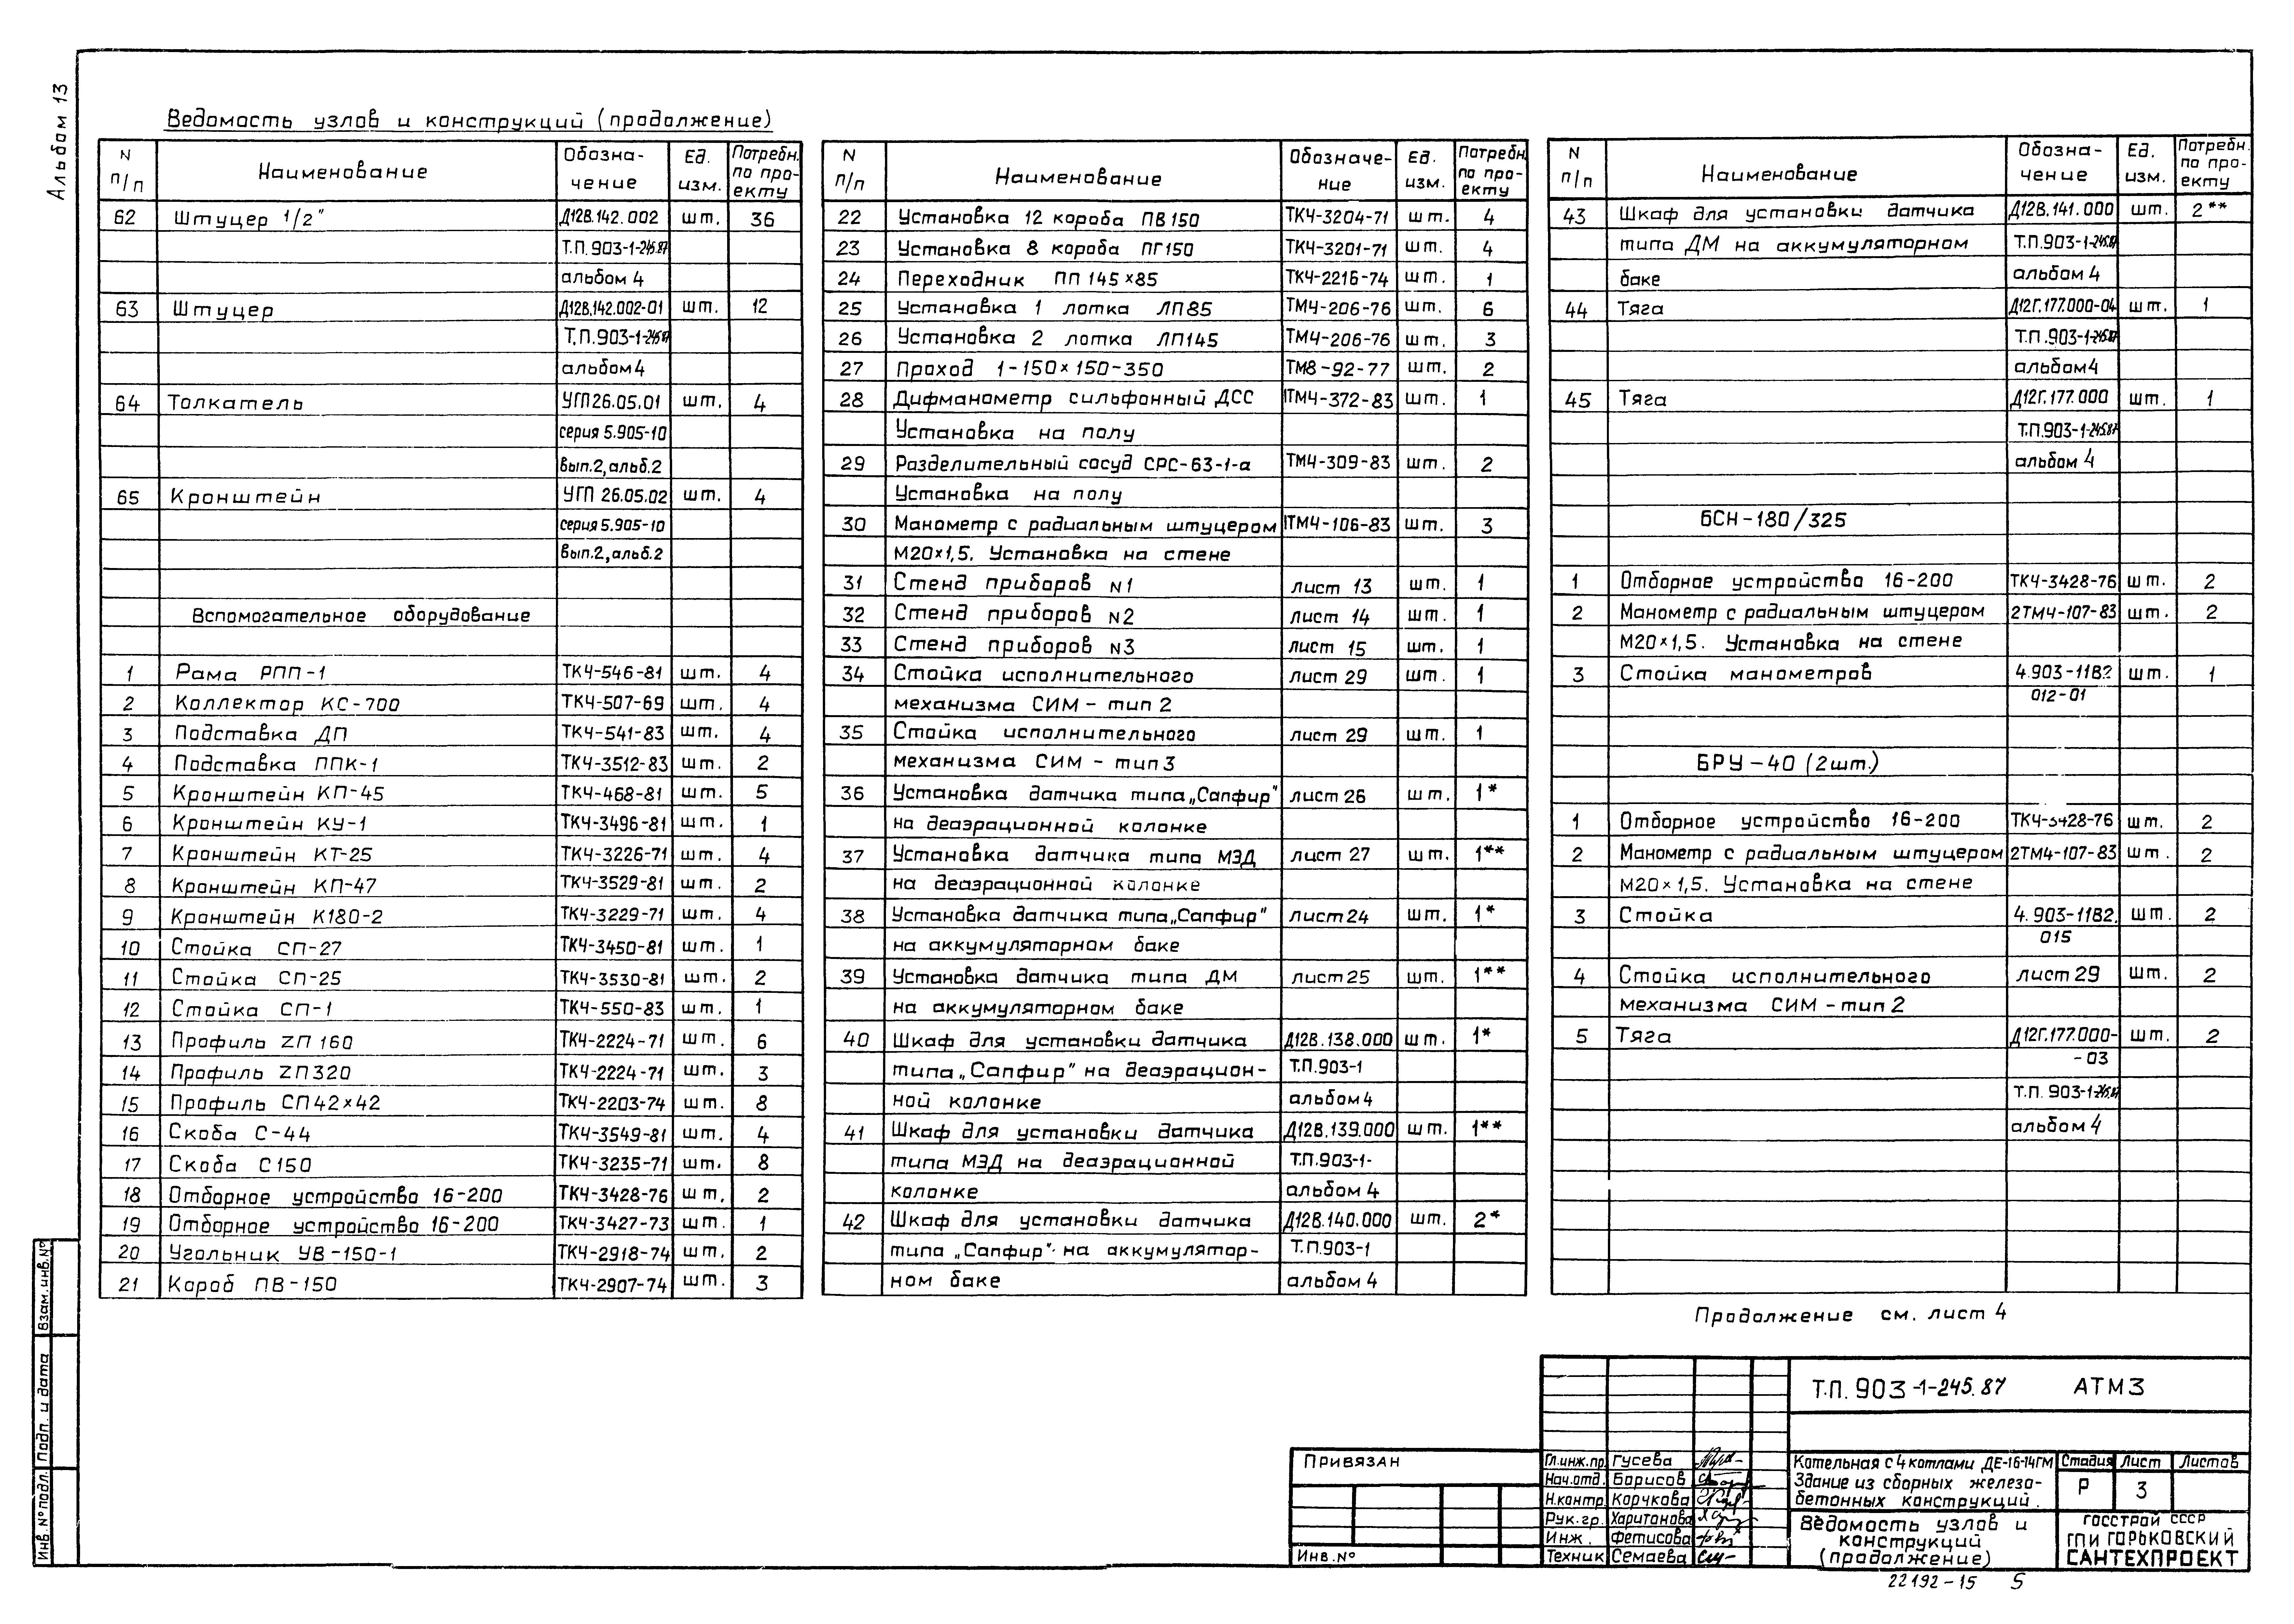 Альбом 13
Ведомость узлов и конструкций (продолжение)
N п/п Наименование Обозна-чение Ед. изм. Потребн. по про-екту
62 Штуцер 1/2" Д12В.142.002 шт. 36
Т.П.903-1-245.87
альбом 4
63 Штуцер Д12В.142.002-01 шт. 12
Т.П.903-1-245.87
альбом4
64 Толкатель УГП26.05.01 шт. 4
серия 5.905-10
вып.2, альб.2
65 Кронштейн УГП 26.05.02 шт. 4
серия 5.905-10
вып.2, альб.2
Вспомогательное оборудование
1 Рама РПП-1 ТК4-546-81 шт. 4
2 Коллектор КС-700 ТК4-507-69 шт. 4
3 Подставка ДП ТК4-541-83 шт. 4
4 Подставка ППК-1 ТК4-3512-83 шт. 2
5 Кронштейн КП-45 ТК4-468-81 шт. 5
6 Кронштейн КУ-1 ТК4-3496-81 шт. 1
7 Кронштейн КТ-25 ТК4-3226-71 шт. 4
8 Кронштейн КП-47 ТК4-3529-81 шт. 2
9 Кронштейн К180-2 ТК4-3229-71 шт. 4
10 Стойка СП-27 ТК4-3450-81 шт. 1
11 Стойка СП-25 ТК4-3530-81 шт. 2
12 Стойка СП-1 ТК4-550-83 шт. 1
13 Профиль ZП 160 ТК4-2224-71 шт. 6
14 Профиль ZП320 ТК4-2224-71 шт. 3
15 Профиль СП42×42 ТК4-2203-74 шт. 8
16 Скоба С-44 ТК4-3549-81 шт. 4
17 Скоба С150 ТК4-3235-71 шт. 8
18 Отборное устройство 16-200 ТК4-3428-76 шт. 2
19 Отборное устройство 16-200 ТК4-3427-73 шт. 1
20 Угольник УВ-150-1 ТК4-2918-74 шт. 2
21 Короб ПВ-150 ТК4-2907-74 шт. 3
N п/п Наименование Обозначе-ние Ед. изм. Потребн. по про-екту
22 Установка 12 короба ПВ150 ТК4-3204-71 шт. 4
23 Установка 8 короба ПГ150 ТК4-3201-71 шт. 4
24 Переходник ПП 145×85 ТК4-2216-74 шт. 1
25 Установка 1 лотка ЛП85 ТМ4-206-76 шт. 6
26 Установка 2 лотка ЛП145 ТМ4-206-76 шт. 3
27 Проход 1-150×150-350 ТМ8-92-77 шт. 2
28 Дифманометр сильфонный ДСС 1ТМ4-372-83 шт. 1
Установка на полу
29 Разделительный сосуд СРС-63-1-а ТМ4-309-83 шт. 2
Установка на полу
30 Манометр с радиальным штуцером 1ТМ4-106-83 шт. 3
М20×1,5. Установка на стене
31 Стенд приборов N1 лист 13 шт. 1
32 Стенд приборов N2 лист 14 шт. 1
33 Стенд приборов N3 лист 15 шт. 1
34 Стойка исполнительного лист 29 шт. 1
механизма СИМ - тип 2
35 Стойка исполнительного лист 29 шт. 1
механизма СИМ - тип3
36 Установка датчика типа „Сапфир" лист 26 шт. 1*
на деаэрационной колонке
37 Установка датчика типа МЭД лист 27 шт. 1**
на деаэрационной колонке
38 Установка датчика типа „Сапфир" лист24 шт. 1*
на аккумуляторном баке
39 Установка датчика типа ДМ лист25 шт. 1**
на аккумуляторном баке
40 Шкаф для установки датчика Д12В.138.000 шт. 1*
типа „Сапфир" на деаэрацион- Т.П.903-1
ной колонке альбом4
41 Шкаф для установки датчика Д12В.139.000 шт. 1**
типа МЭД на деаэрационной Т.П.903-1-
колонке альбом 4
42 Шкаф для установки датчика Д12В.140.000 шт. 2*
типа „Сапфир" на аккумулятор- Т.П.903-1
ном баке альбом 4
N п/п Наименование Обозна-чение Ед. изм. Потребн. по про-екту
43 Шкаф для установки датчика Д12В.141.000 шт. 2**
типа ДМ на аккумуляторном Т.П.903-1-245.87
баке альбом 4
44 Тяга Д12Г.177.000-04 шт. 1
Т.П.903-1-245.87
альбом4
45 Тяга Д12Г.177.000 шт. 1
Т.П.903-1-245.87
альбом 4
БСН-180/325
1 Отборное устройство 16-200 ТК4-3428-76 шт. 2
2 Манометр с радиальным штуцером 2ТМ4-107-83 шт. 2
М20×1,5. Установка на стене
3 Стойка манометров 4.903-11В2 шт. 1
012-01
БРУ-40 (2шт.)
1 Отборное устройство 16-200 ТК4-3428-76 шт. 2
2 Манометр с радиальным штуцером 2ТМ4-107-83 шт. 2
М20×1,5. Установка на стене
3 Стойка 4.903-11В2. шт. 2
015
4 Стойка исполнительного лист29 шт. 2
механизма СИМ - тип 2
5 Тяга Д12Г.177.000- шт. 2
-03
Т.П. 903-1-245.87
альбом4
Продолжение см. лист 4
Т.П. 903-1-245.87 АТМ3
Привязан
Инв.№
Гл.инж.пр. Гусева
Нач.отд. Борисов
Н.контр. Корчкова
Рук.гр. Харитонова
Инж. Фетисова
Техник Семаева
Котельная с 4 котлами ДЕ-16-14ГМ
Здание из сборных железо-
бетонных конструкций.
Стадия Лист Листов
Р 3
Ведомость узлов и
конструкций
(продолжение)
ГОССТРОЙ СССР
ГПИ ГОРЬКОВСКИЙ
САНТЕХПРОЕКТ
22192-15 5
Взам.инв.№
Подп. и дата
Инв.№ подл.